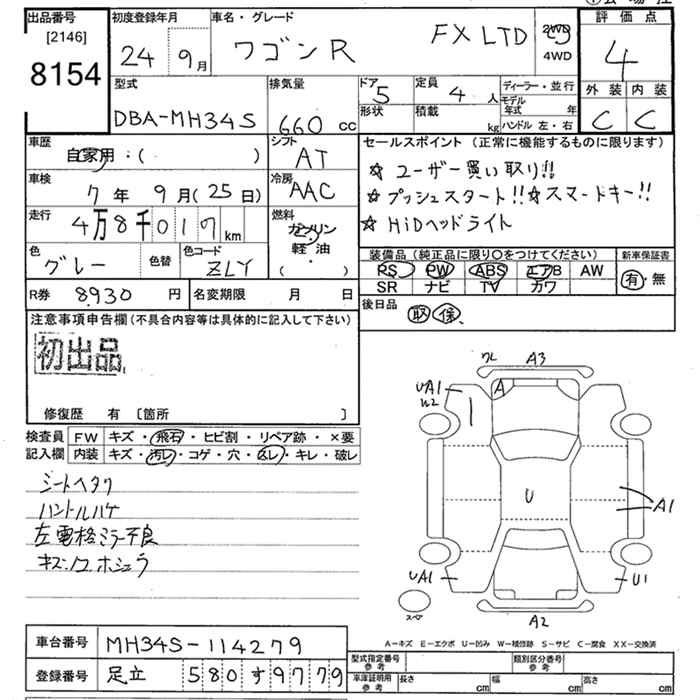 出品番号 [2146] 8154
初度登録年月 24 9月
車名・グレード ワゴンR FX LTD 2WD 4WD
評価点 4
外装 C 内装 C
型式 DBA-MH34S
排気量 660 cc
ドア 5 形状
定員 4 人 積載 kg
ディーラー・並行
モデル年式 年
ハンドル 左・右
車歴 自家用:( )
シフト AT
セールスポイント (正常に機能するものに限ります)
☆ ユーザー買い取り!!
☆ プッシュスタート!! ☆ スマートキー!!
☆ HiDヘッドライト
車検 7年 9月(25日)
冷房 AAC
走行 4万8千017 km
燃料 ガソリン 軽・油 ( )
色 グレー 色替
色コード ZLY
装備品 (純正品に限り〇をつけてください)
PS PW ABS エアB AW
SR ナビ TV カワ
新車保証書 有・無
R券 8930 円
名変期限 月 日
後日品 取 保
注意事項申告欄 (不具合内容等は具体的に記入して下さい)
初出品
修復歴 有 〔箇所 〕
検査員記入欄
FW キズ・飛石・ヒビ割・リペア跡・×要
内装 キズ・汚レ・コゲ・穴・スレ・キレ・破レ
シートヘタリ
ハンドルハゲ
左電格ミラー不良
ワレ A3
UA1 W2
A
U
A1
UA1
U1
スペア
A2
A-キズ E-エクボ U-凹み W-補修跡 S-サビ C-腐食 XX-交換済
車台番号 MH34S-114279
登録番号 足立 580す9779
型式指定番号 参考
類別区分番号 参考
車庫証明用 参考 長さ cm 幅 cm 高さ cm